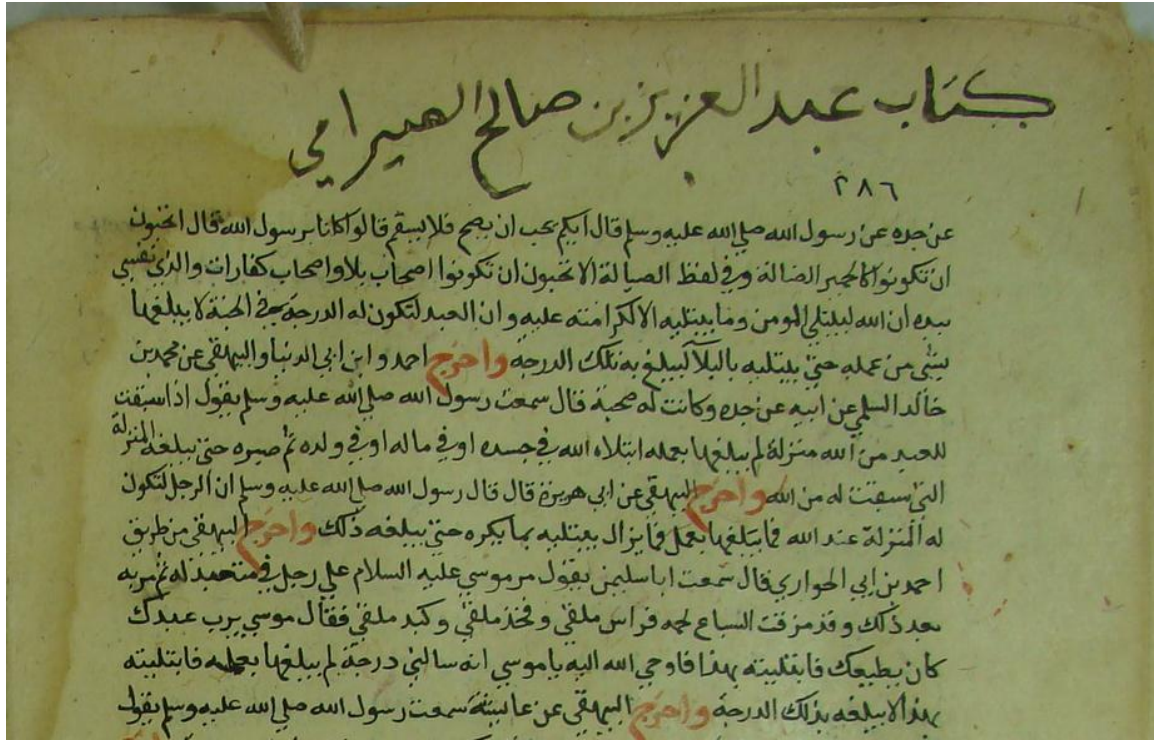 كتاب عبد العزيز بن صالح الصيرامي
٢٨٦
عن جده عن رسول الله صلي الله عليه وسلم قال ايكم يحب ان يصح فلا يسقم قالوا كلنا يرسول الله قال اتحبون
ان تكونوا كالحمير الضالة وفي لفظ الصيالة الا تحبون ان تكونوا اصحاب بلا واصحاب كفارات والذي نفسي
بيده ان الله ليبتلي المومن وما يبتليه الا لكرامته عليه وان العبد لتكون له الدرجة في الجنة لا يبلغها
بشي من عمله حتي يبتليه بالبلا ليبلغ به تلك الدرجه واخرج احمد وابن ابي الدنيا والبيهقي عن محمد بن
خالد السلمي عن ابيه عن جده وكانت له صحبة قال سمعت رسول الله صلي الله عليه وسلم يقول اذا سبقت
للعبد من الله منزلة لم يبلغها بعمله ابتلاه الله في جسده او في ماله او في ولده ثم صبره حتي يبلغه المنزلة
التي سبقت له من الله واخرج البيهقي عن ابي هريرة قال قال رسول الله صلي الله عليه وسلم ان الرجل لتكون
له المنزلة عند الله فما يبلغها بعمل فما يزال يبتليه بما يكره حتي يبلغه ذلك واخرج البيهقي من طريق
احمد بن ابي الحواري قال سمعت ابا سليمن يقول مر موسي عليه السلام علي رجل في متعبد له ثم مر به
بعد ذلك وقد مزقت السباع لحمه فراس ملقي وفخذ ملقي وكبد ملقي فقال موسي يرب عبدك
كان يطيعك فابتليته بهذا فاوحي الله اليه ياموسي انه سالني درجة لم يبلغها بعمله فابتليته
بهذا لابلغه بذلك الدرجة واخرج البيهقي عن عايشة سمعت رسول الله صلي الله عليه وسلم يقول